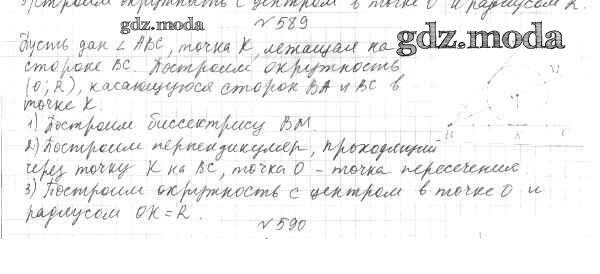 3) строим окружность с центром в точке O и радиусом R.
№589
gdz.moda
Пусть дан ∠ ABC, точка K, лежащая на
gdz.moda
стороне BC. Построим окружность
(O; R), касающуюся сторон BA и BC в
точке K.
1) Построим биссектрису BM.
2) Построим перпендикуляр, проходящий
через точку K на BC, точка O - точка пересечения.
3) Построим окружность с центром в точке O и
радиусом OK = R.
№590